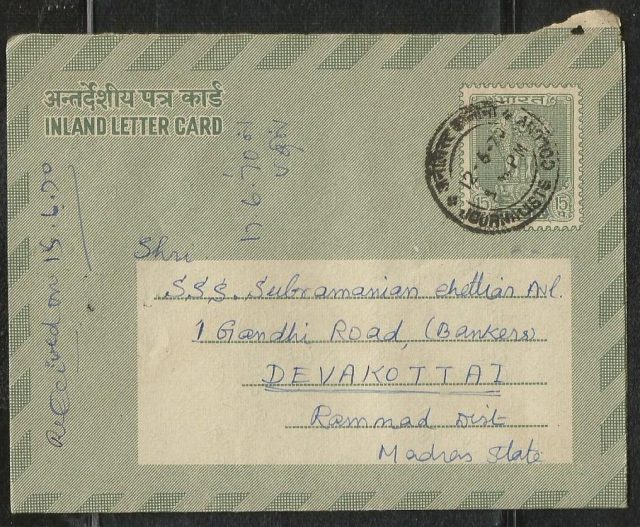 अन्तर्देशीय पत्र कार्ड
INLAND LETTER CARD
भारत
15 15
JOURNALISTS COLONY
12-6-70
PM
Received on 15.6.70
17.6.70
Shri
S.S.S. Subramanian chettiar Avl.
1 Gandhi Road, (Bankers)
DEVAKOTTAI
Ramnad Dist
Madras State